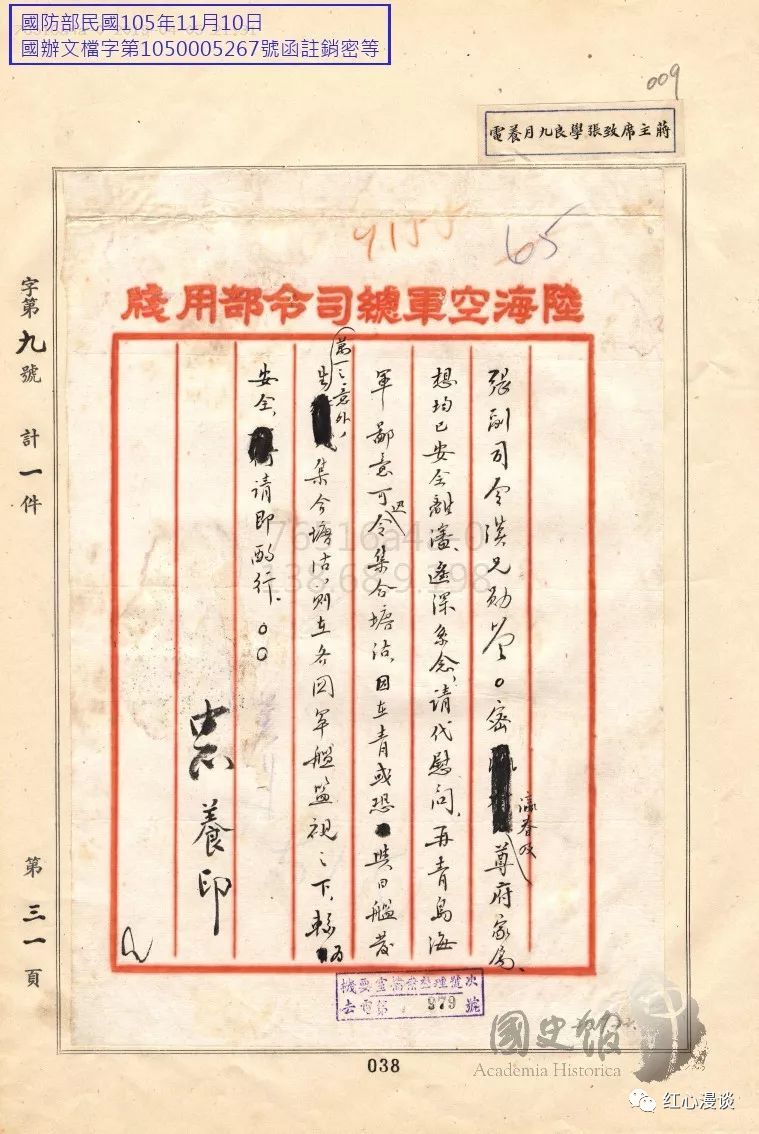 國防部民國105年11月10日
國辦文檔字第1050005267號函註銷密等
009
蔣主席致張學良九月養電
65
陸海空軍總司令部用牋
張副司令漢兄勛鑒。密瀛眷及尊府家屬、
想均已安全離瀋、遙深系念、請代慰問、再青島海
軍鄙意可迅令集合塘沽、因在青或恐與日艦發
生萬一之意外、集合塘沽、則在各國軍艦監視之下、較為
安全、請即酌行、○○
中正 養印
字第九號 計一件 第三一頁
機要室檔案整理號次
去電第 379 號
038
國史館
Academia Historica
红心漫谈